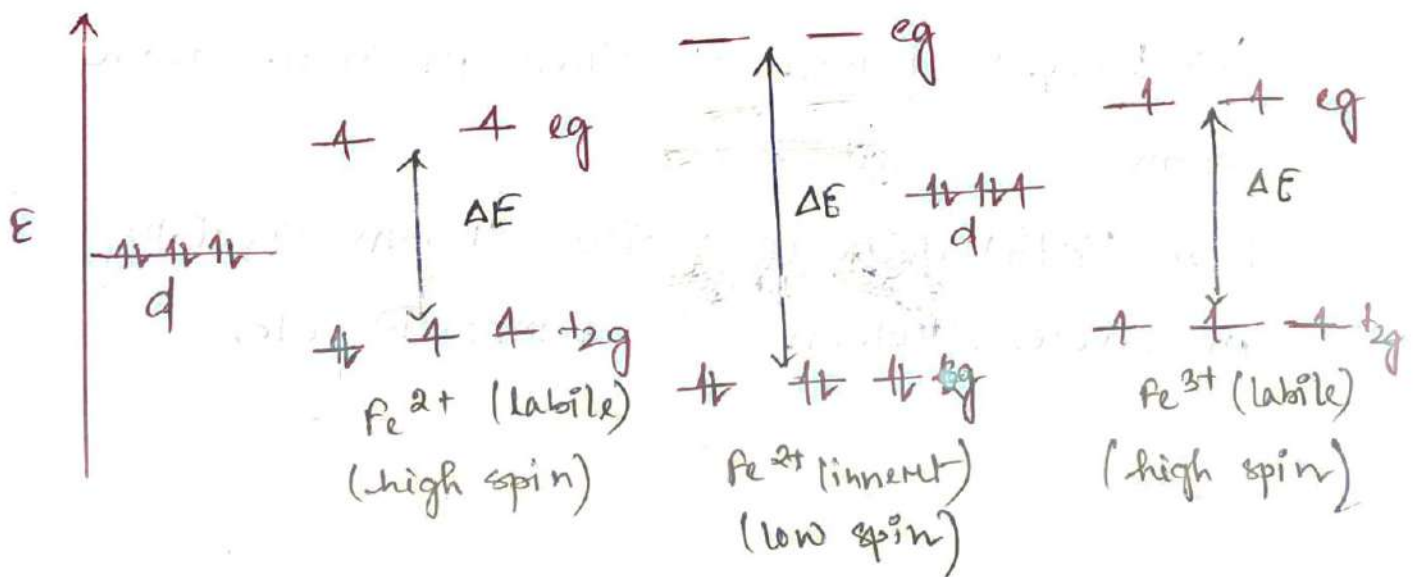 E
d
eg
ΔE
t2g
Fe2+ (labile)
(high spin)
eg
ΔE
Fe2+ (innert)
(low spin)
d
eg
ΔE
t2g
Fe3+ (labile)
(high spin)